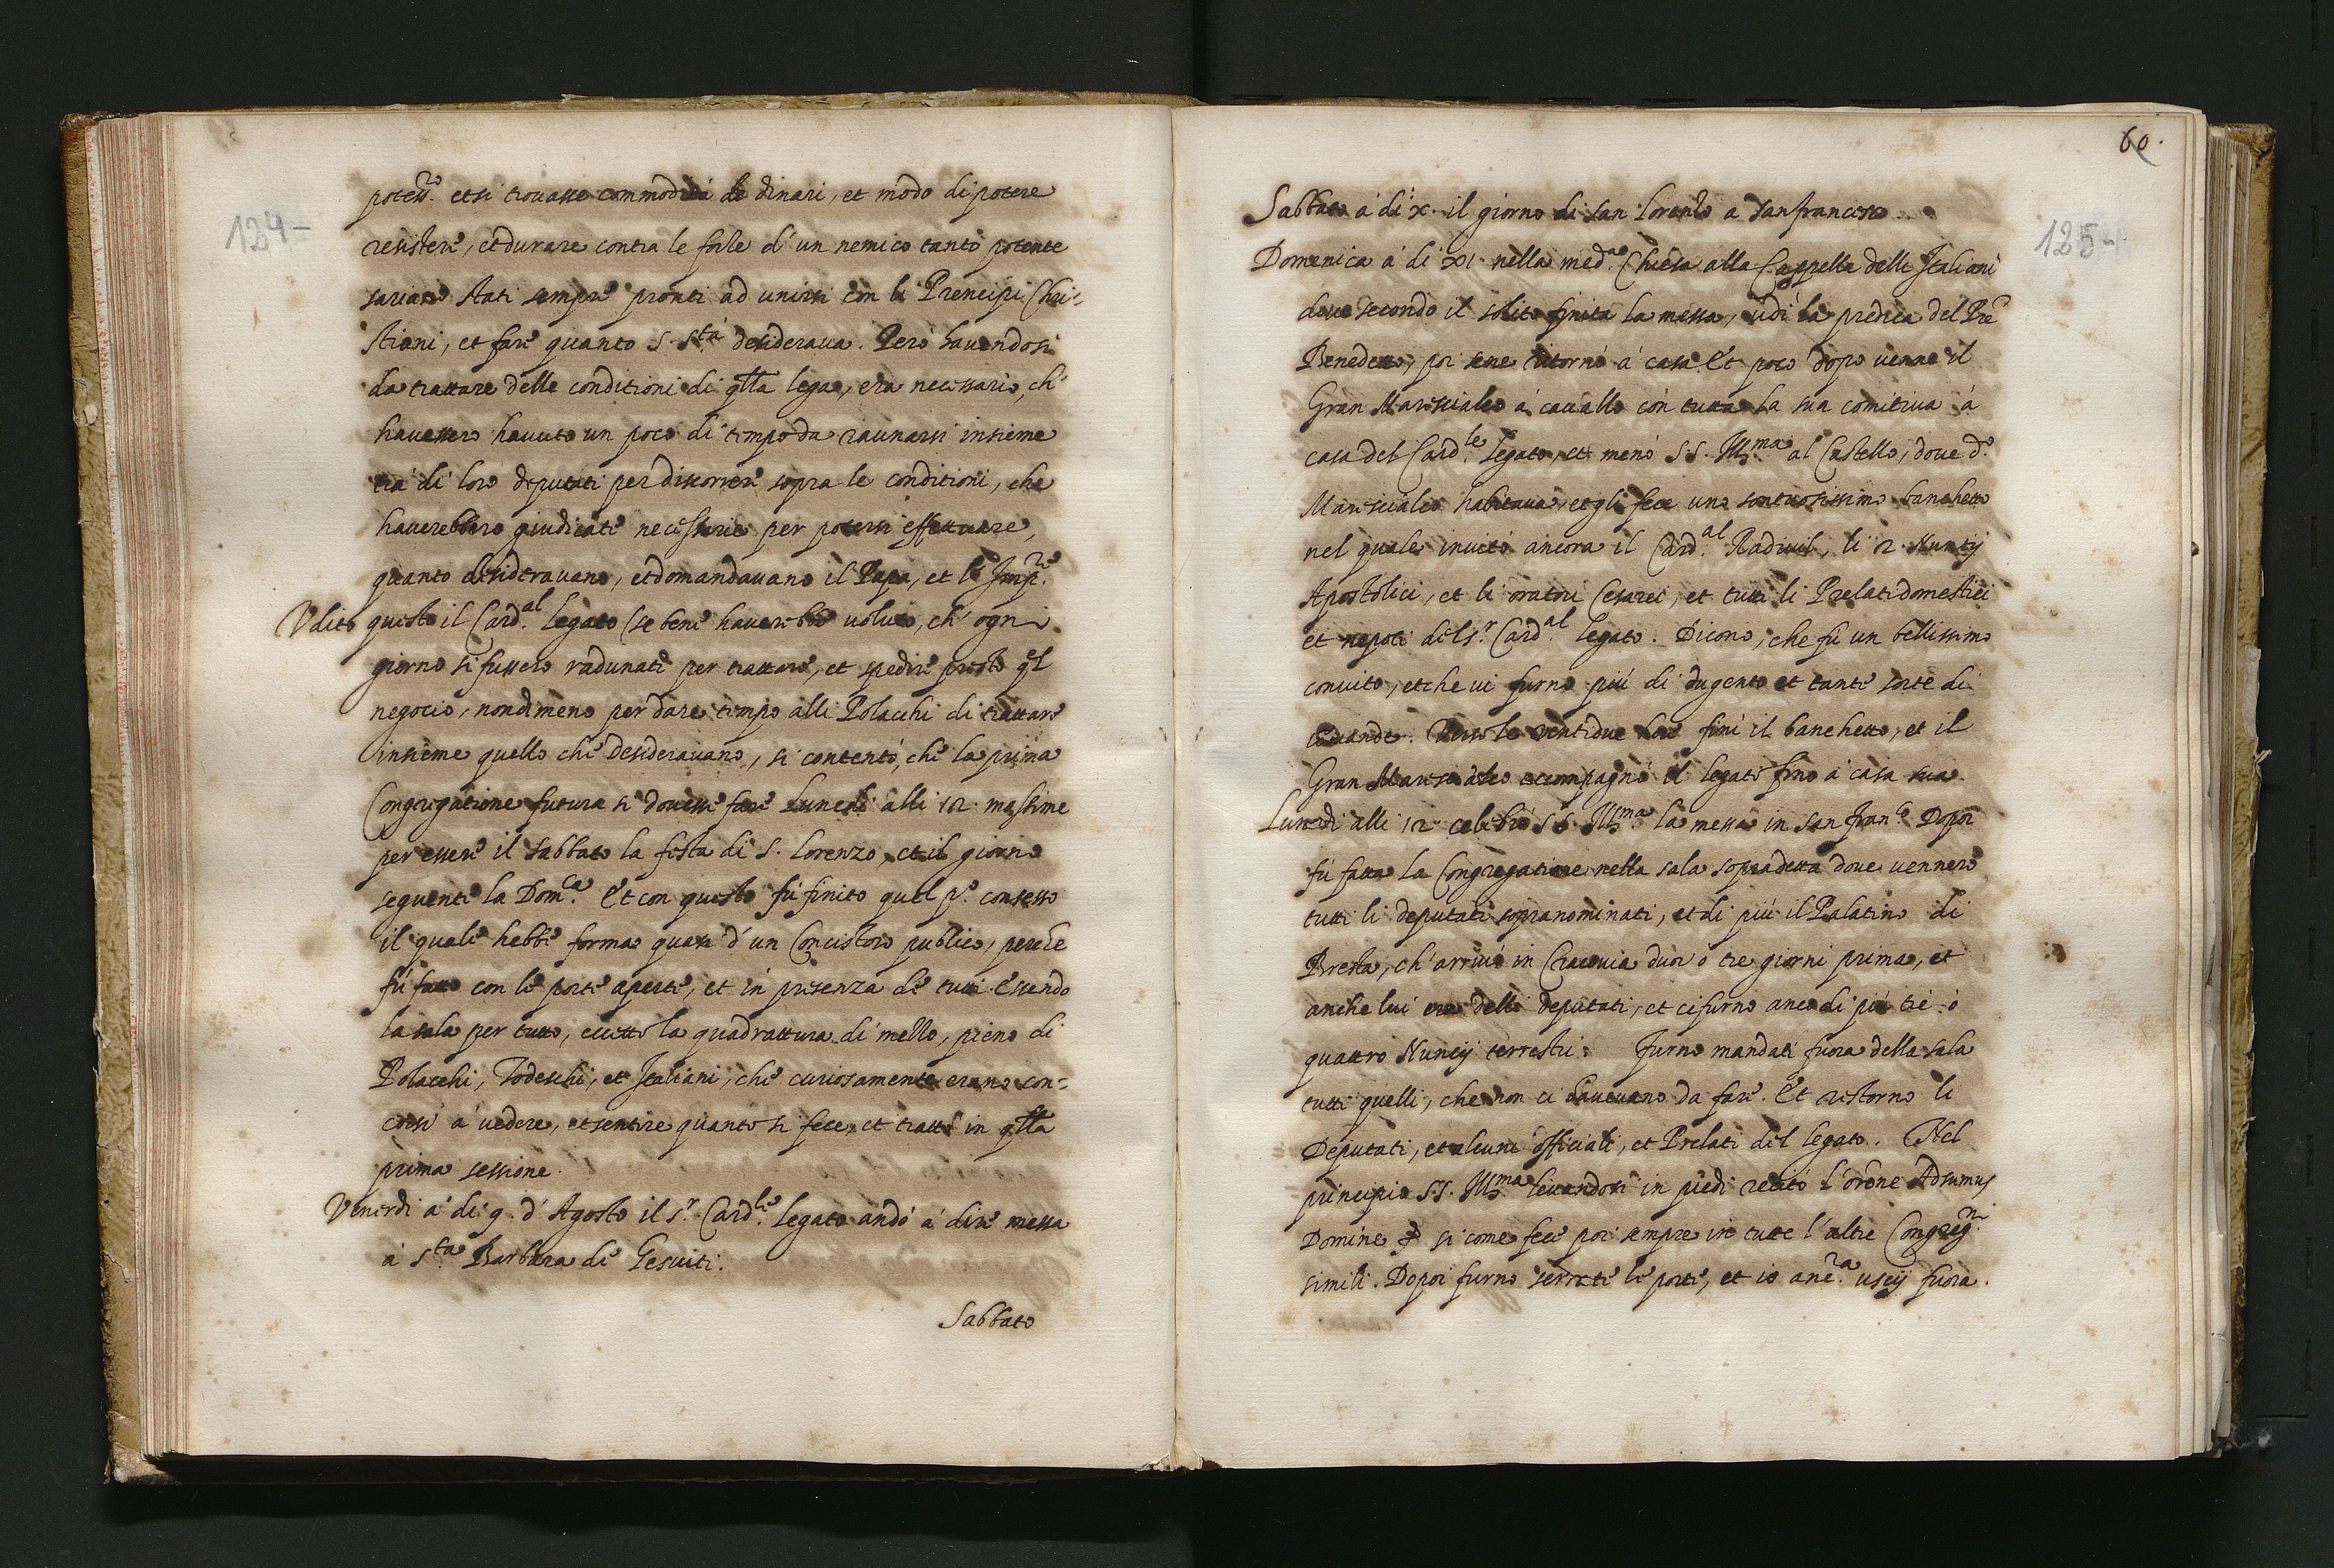 124-
potess.ro et si trovasse commodità de dinari, et modo di potere
resistere, et durare contra le forze d'un nemico tanto potente
sariano stati sempre pronti ad unirsi con li Prencipi Chri-
stiani, et fare quanto S. S.tà desiderava. Però havendosi
da trattare delle conditioni di q̃lla lega, era necessario, ch'
havessero havuto un poco di tempo da raunarsi insieme
trà di loro deputati per discorrere sopra le conditioni, che
haverebbero giudicate necessarie per potersi effettuare,
quanto desideravano, et domandavano il Papa, et l' Imp.re
Udito questo il Card.al Legato (se bene haverebbe voluto, ch' ogni
giorno si fussero radunati per trattare, et spedire presto q̃l
negocio, nondimeno per dare tempo alli Polacchi di trattare
insieme quello che desideravano, si contentò, che la prima
Congregatione futura si dovesse fare Lunedi alli 12. massime
per essere il sabbato la festa di S. Lorenzo, et il giorno
seguente la Dom.ca Et con questo fù finito quel p.o consesso
il quale hebbe forma quasi d'un Concistoro publico, perche
fù fatto con le porte aperte, et in presenza de tutti. Essendo
la sala per tutto, eccetto la quadrattura di mezzo, pieno di
Polacchi, Todeschi, et Italiani, che curiosamente erano con-
corsi à vedere, et sentire quanto si fece, et trattò in q̃lla
prima sessione.
Venerdi à di 9. d'Agosto il S.r Card.le Legato andò à dire messa
à S.ta Barbara de Gesuiti.
Sabbato
60.
125-
Sabbato à di x. il giorno di san Lorenzo a san francesco
Domenica à di XI. nella med.a Chiesa alla Cappella delli Italiani
dove secondo il solito finita la messa, udì la predica del Pre
Benedetto, poi sene ritornò à casa. Et poco dopo venne il
Gran Maresciales à cavallo con tutta la sua comitiva à
casa del Card.le Legato, et menò S.S. Ill.ma al Castello, dove d.o
Maresciales habitava, et gli fece uno sontuosissimo banchetto
nel quale invitò ancora il Card.al Radivil, li 2. Nuntij
Apostolici, et li oratori Cesarei, et tutti li Prelati domestici
et nepoti del S.r Card.al Legato. Dicono, che fù un bellissimo
convito, et che vi furno più di dugento et tante sorte di
vivande. Verso le ventidue hore finì il banchetto, et il
Gran Maresciales accompagnò il legato fino à casa sua.
Lunedi alli 12. celebrò S.S. Ill.ma la messa in San Fran.co Dopoi
fù fatta la Congregatione nella sala sopradetta dove vennero
tutti li deputati sopranominati, et di più il Palatino di
Bresta, ch'arrivò in Cracovia duoi ò tre giorni prima, et
anche lui era delli deputati, et ci furno anco di più tre ò
quattro Nuncij terrestri. Furno mandati fuora della sala
tutti quelli, che non ci havevano da fare. Et restorno li
Deputati, et alcuni officiali, et Prelati del legato. Nel
principio S.S. Ill.ma levandosi in piedi recitò l'orõne Adsumus
Domine si come fece poi sempre in tutte l'altre Congreg.ni
simili. Dopoi furno serrate le porte, et io anc.ra uscij fuora.